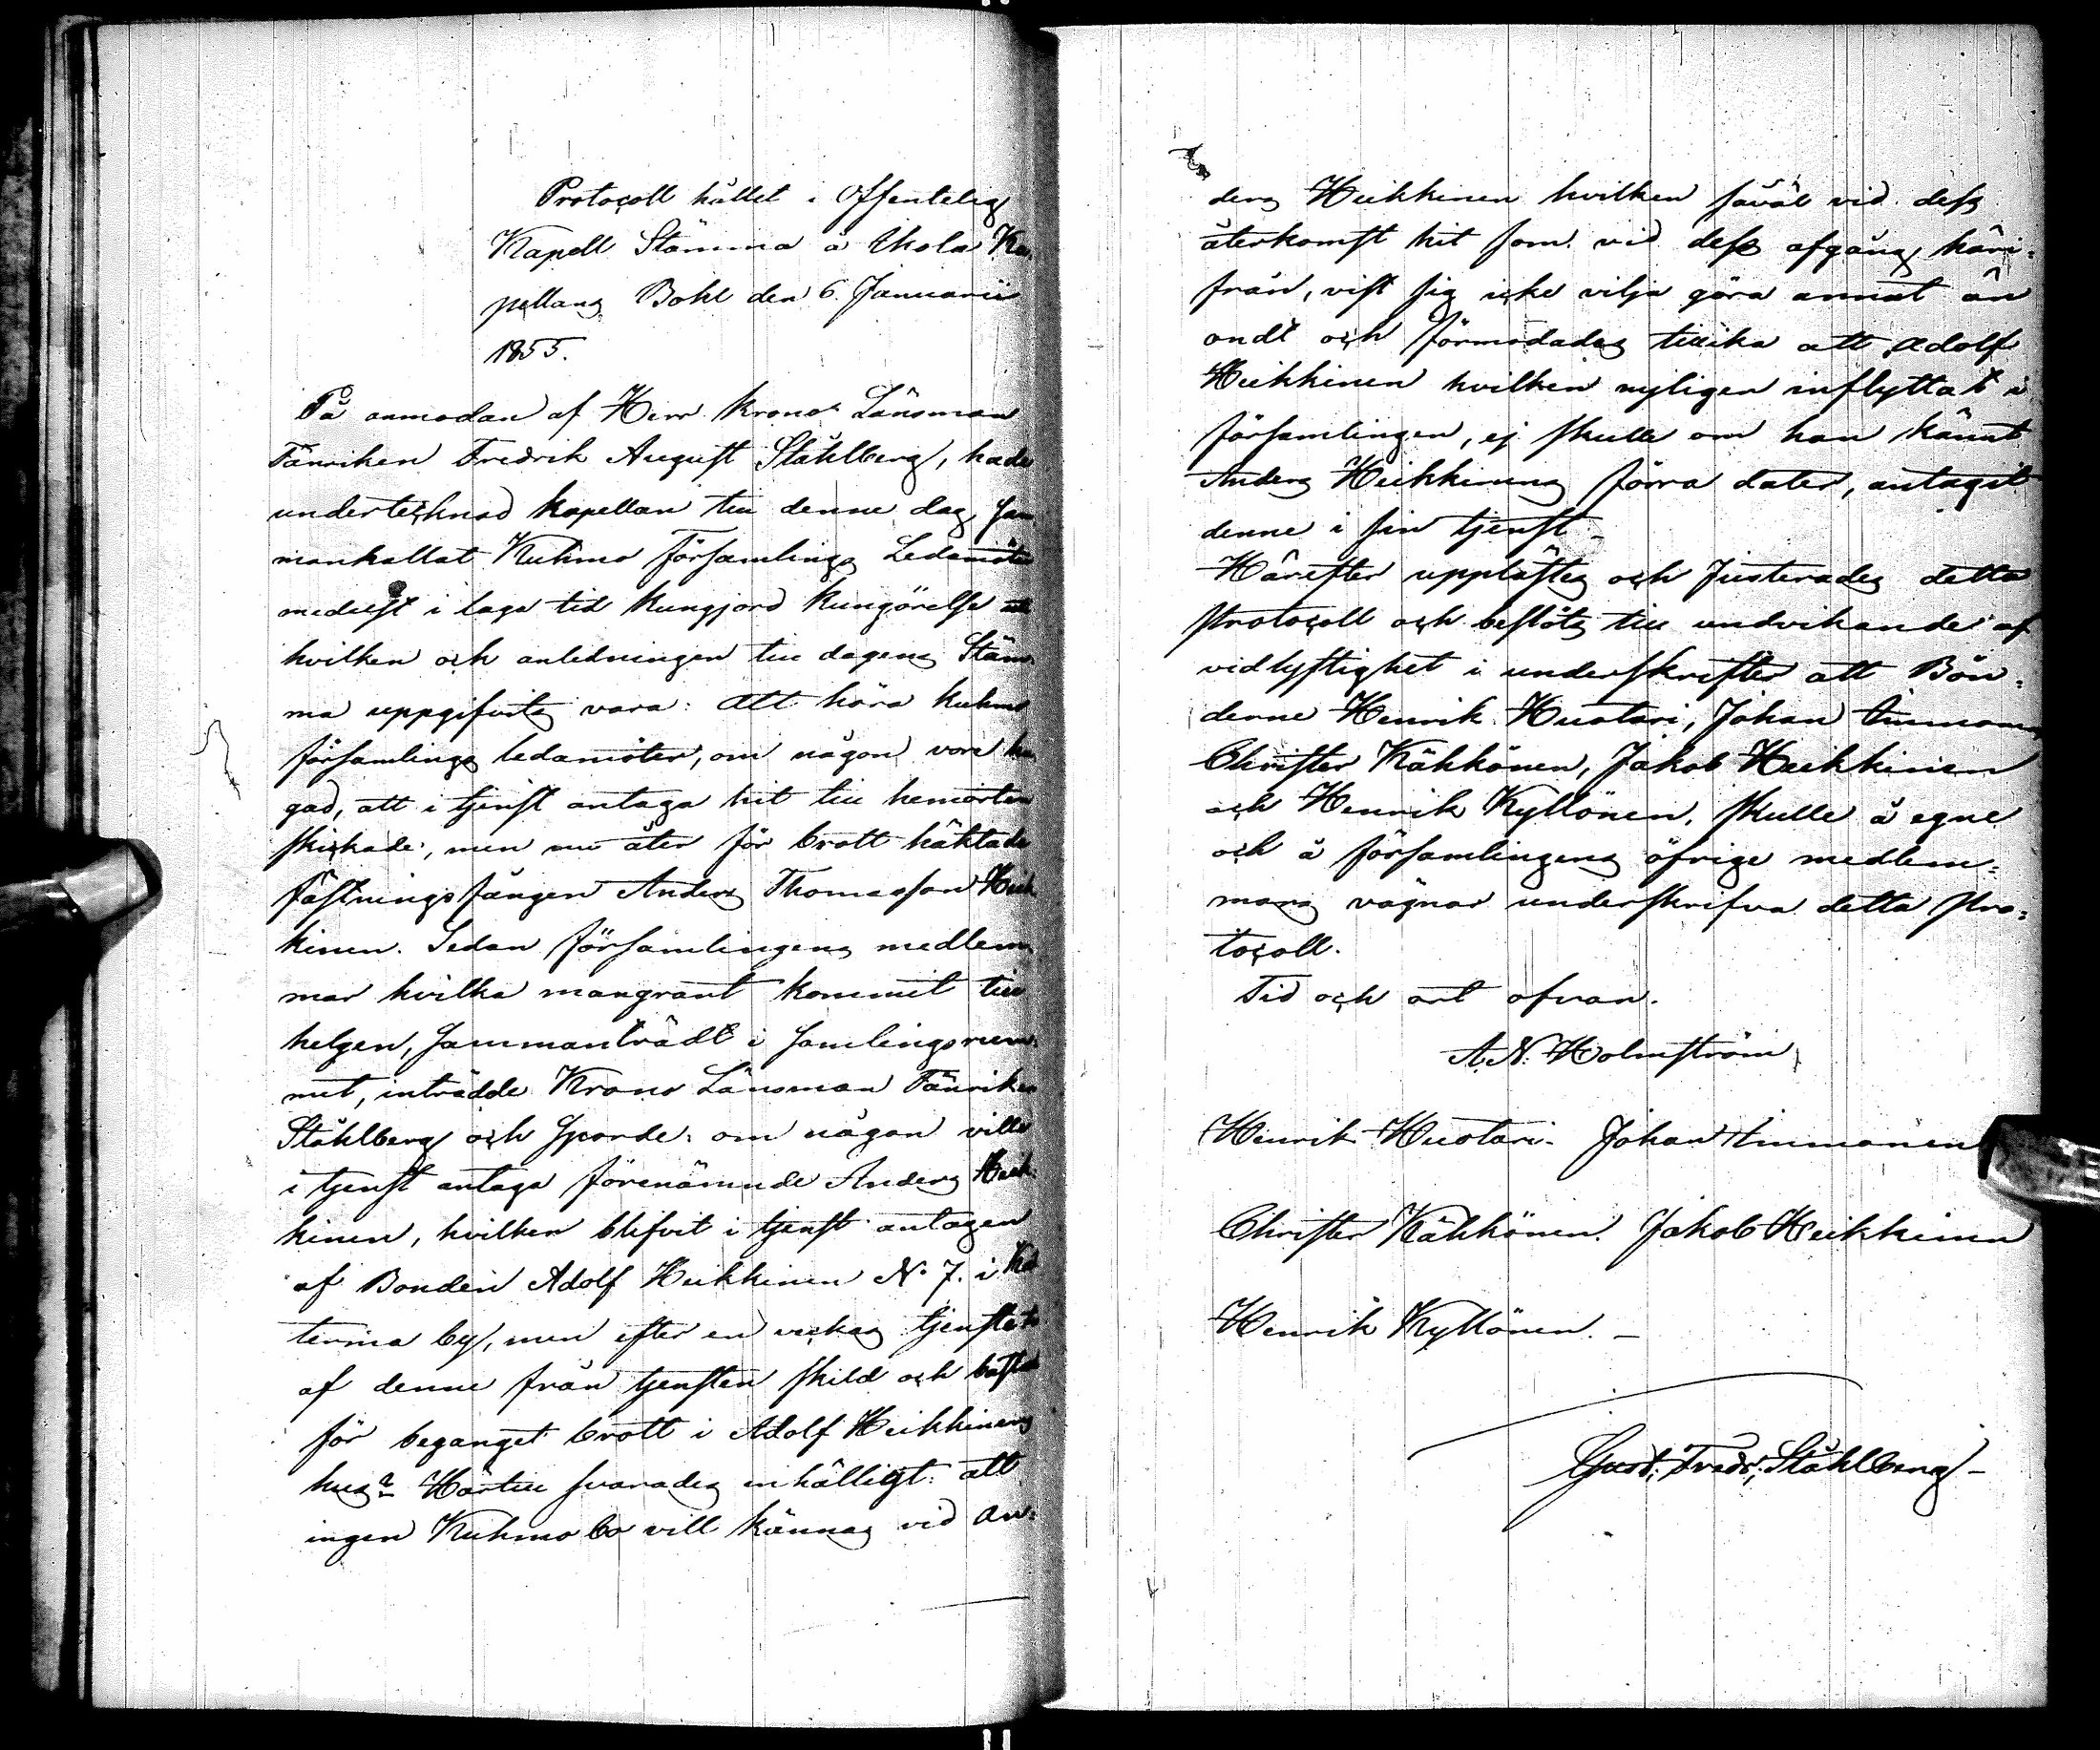 Protocoll hållet i Offentelig
Kapell Stämma å Ukola Ka,
pellans Bohl den 6. Januarii
1855.
På anmodan af Herr Krono Länsman
Fänriken Fredrik August Ståhlberg, hade
undertecknad kapellan till denne dag sam
mankallat Kuhmo Församlings Ledamöter
medelst i laga tid kungjord kungörelse
hvilken och anledningen till dagens Stäm
ma uppgifvits vara: att höra Kuhmo
församlings ledamöter, om någon vore hu
gad, att i tjenst antaga hit till hemorten
skickade, men nu åter för brott häktade
fästningsfången Anders Thomasson Heik
kinen. Sedan församlingens medlem,
mar hvilka mangrant kommit till
helgen, sammanträdt i samlingsrum,
met, inträdde Krono Länsman Fänriken
Ståhlberg och sporde: om någon ville
i tjenst antaga förenämnde Anders Heik
kinen, hvilken blifvit i tjenst antagen
af Bonden Adolf Heikkinen No 7. i
term̄a by, men efter en veckas tjenste
af denne från tjensten skild och
för beganget brott i Adolf Heikkinens
hus? Härtill svarades enhälligt: att
ingen Kuhmo bo vill kännas vid An:
ders Heikkinen hvilken såväl vid dess
återkomst hit som vid dess afgång häri:
från, vist sig icke vilja göra annat än
ondt och förmodades tillika att Adolf
Heikkinen hvilken nyligen inflyttat i
församlingen, ej skulle om han kännt
Anders Heikkinens förra dater, antagit
denne i sin tjenst_
Härefter upplästes och Justerades detta
Protocoll och beslöts till undvikande af
vidlyftighet i underskrifter att Bön:
derne Henrik Huotari, Johan
Christer Kähkönen, Jakob Heikkinen
och Henrik Kyllönen, skulle å egne
och å församlingens öfrige medlem:
mars vägnar underskrifva detta Pro:
tocoll.
Tid och ort ofvan.
A.N. Holmström
Henrik Huotari. Johan
Christer Kähkönen. Jakob Heikkinen
Henrik Kyllönen. _
Gust: Fredr: Ståhlberg_